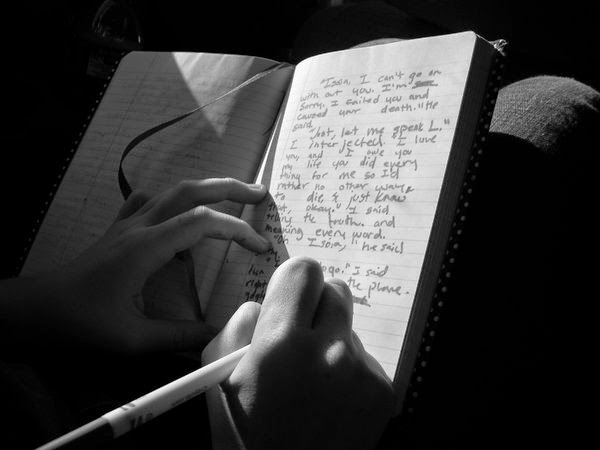 "Isoia, I can't go on
with out you. I'm
sorry. I failed you and
caused your death." He
said.
"Just, let me speak L."
I interjected. "I love
you, and I owe you
my life you did every
thing for me so I'd
rather no other way
to die, & just know
that, okay." I said
telling the truth. and
meaning every word.
"Oh Isoia," he said
"I go." I said
right the plane.